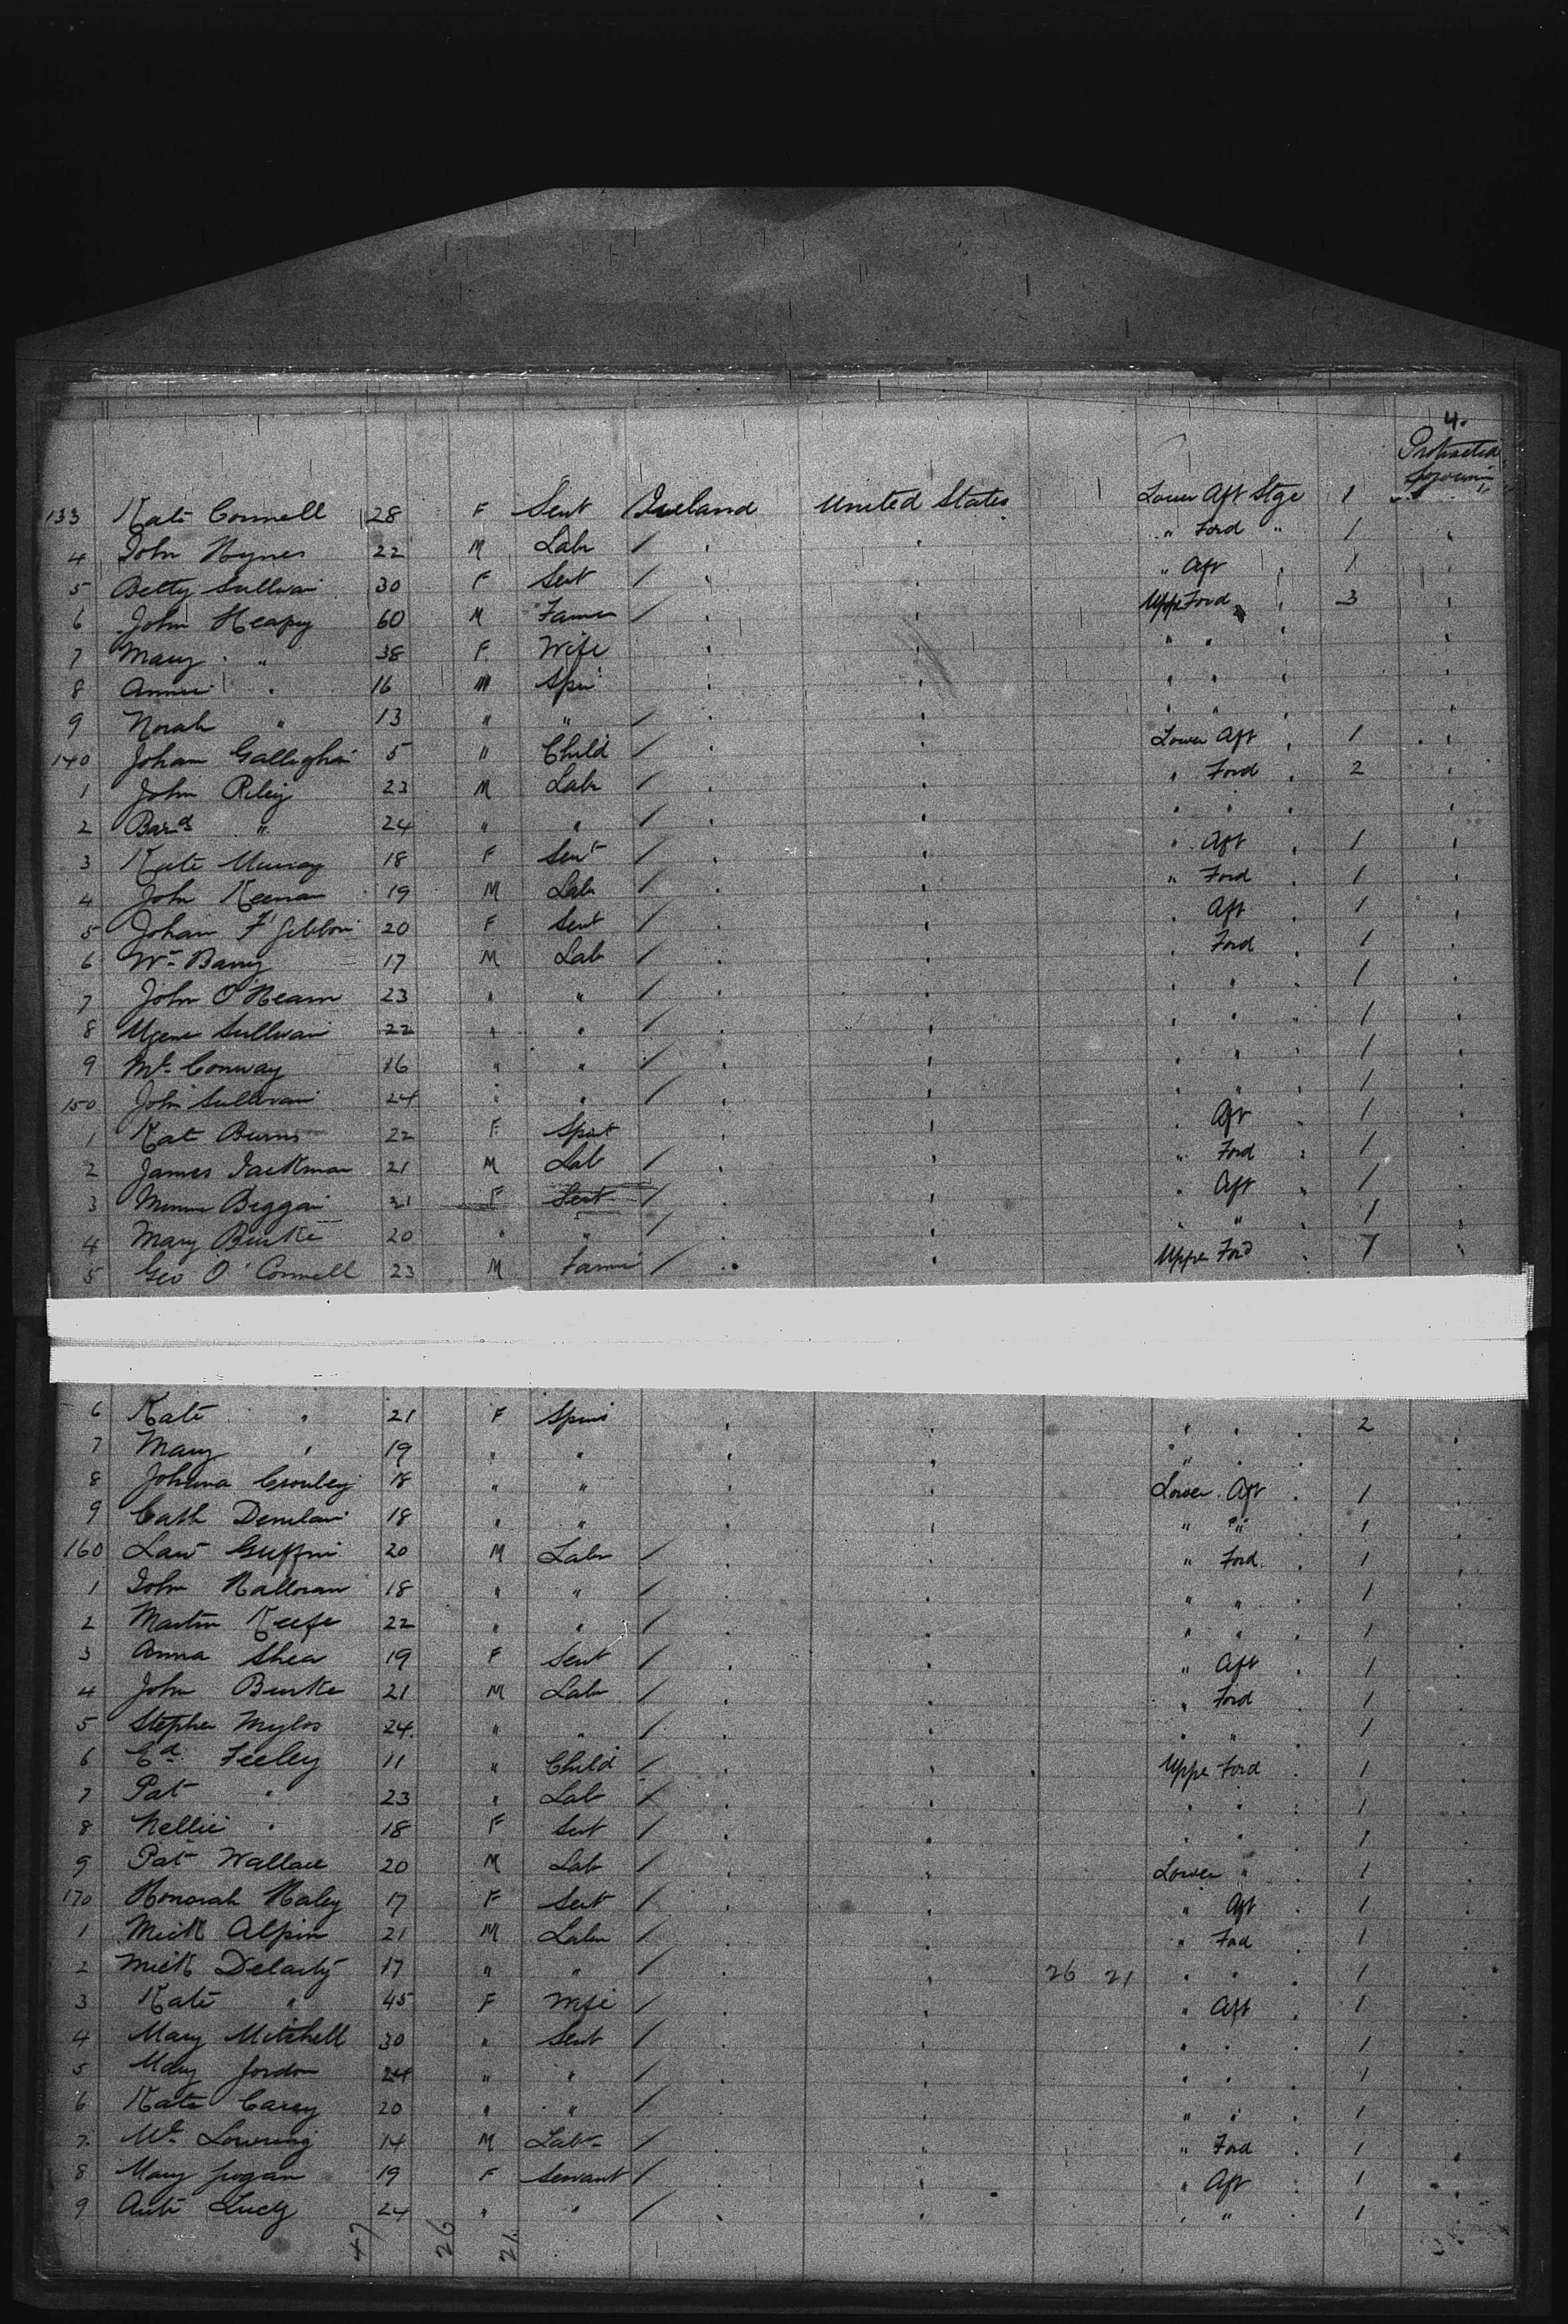 4.
Protracted
133 Kate Connell 28 F Sent Ireland United States Lower Aft Stge 1 "
4 John Hynes 22 M Labr / " " " Ford " 1 "
5 Betty Sullivan 30 F Sent / " " " Aft " 1 "
6 John Heapy 60 M Famer / " " Uppr Ford " 3 "
7 Mary " 38 F Wife " " " " "
8 Annie " 16 M Spin " " " " "
9 Norah " 13 " " / " " " " " "
140 Johan Gallighan 5 " Child / " " Lower Aft " 1 "
1 John Riley 23 M Labr / " " " Ford " 2 "
2 Bard " 24 " " / " " " " " "
3 Kate Murray 18 F Sent / " " " Aft " 1 "
4 John Keenan 19 M Lab / " " " Ford " 1 "
5 Johan F'Gibbon 20 F Sent / " " " Aft " 1 "
6 Wm Barry 17 M Lab / " " " Ford 1 "
7 John O'Hearn 23 " " / " " " " " 1 "
8 Sullivan 22 " " / " " " " " 1 "
9 Conway 16 " " / " " " " " 1 "
150 John Sullivan 24 " " / " " " " " 1 "
1 Kat Burns 22 F Spist " " " Aft " 1 "
2 James Jackman 21 M Lab / " " " Ford " 1 "
3 Minnie Beggan 21 F Sent / " " " Aft " 1 "
4 Mary Burke 20 " " / " " " " 1 "
5 Geo O'Connell 23 M Famr / " " Upper Ford " 1 "
6 Kate " 21 F Spins " " " " " 2 "
7 Mary " 19 " " " " " " " "
8 Johnna Crowley 18 " " " " Lower Aft " 1 "
9 Cath 18 " " " " " " " 1 "
160 Law Guffin 20 M Labr / " " " Ford " 1 "
1 John Halloran 18 " " / " " " " 1 "
2 Martin Keefe 22 " " / " " " " 1 "
3 Anna Shea 19 F Sent / " " " Aft " 1 "
4 John Burke 21 M Labr / " " " Ford " 1 "
5 Stephen Myles 24 " " / " " " " " 1 "
6 Ed Feeley 11 " Child / " " Uppr Ford " 1 "
7 Pat " 23 " Lab / " " " " " 1 "
8 Nellie " 18 F Set / " " " " 1 "
9 Pat Wallace 20 M Lab / " " Lower " 1 "
170 Honorah Haley 17 F Sent / " " " Aft " 1 "
1 Mick Alpin 21 M Labr / " " " Ford " 1 "
2 Mick Delarty 17 " " / " " 26 21 " " " 1 "
3 Kate " 45 F Wife / " " " Aft " 1 "
4 Mary Mitchell 30 " Sent / " " " " " 1 "
5 Mary Jordon 24 " " / " " " " 1 "
6 Kate Carey 20 " " / " " " " " 1 "
7 Lowring 14 M Labr / " " " Ford " 1 "
8 Mary Grogan 19 F Servant / " " " Aft " 1 "
9 Lucy 24 " " / " " " " " 1 "
47 26 21